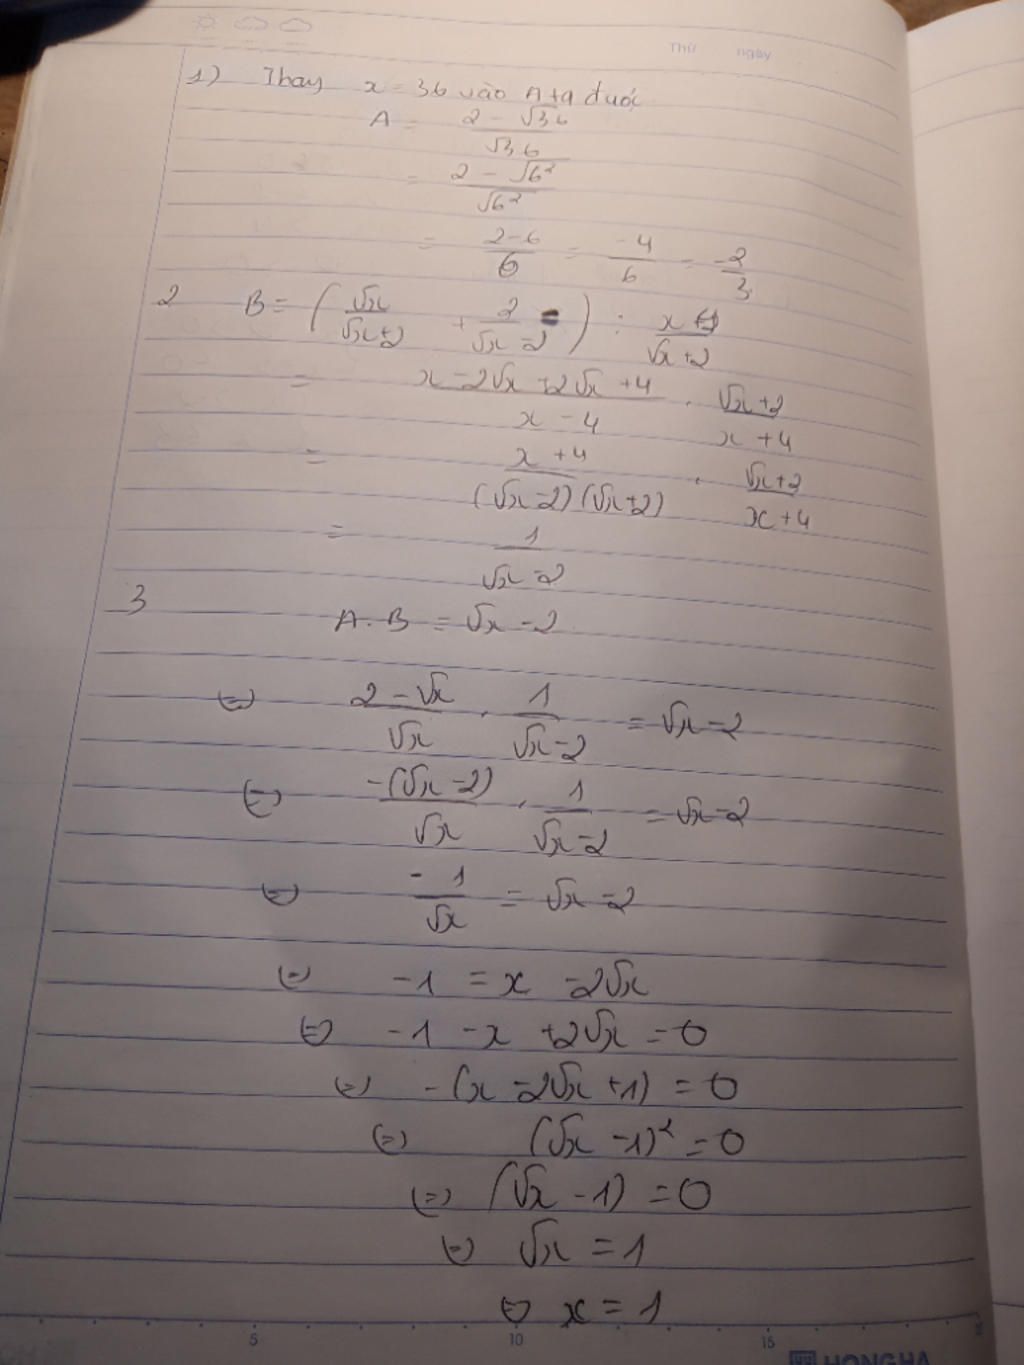 Thứ ngày
1) Thay x = 36 vào A ta được
A = \frac{2 - \sqrt{36}}{\sqrt{36}}
= \frac{2 - \sqrt{6^2}}{\sqrt{6^2}}
= \frac{2-6}{6} = \frac{-4}{6} = \frac{-2}{3}
2 B = (\frac{\sqrt{x}}{\sqrt{x}+2} + \frac{2}{\sqrt{x}-2}) : \frac{x+4}{\sqrt{x}+2}
= \frac{x - 2\sqrt{x} + 2\sqrt{x} + 4}{x - 4} . \frac{\sqrt{x}+2}{x+4}
= \frac{x+4}{(\sqrt{x}-2)(\sqrt{x}+2)} . \frac{\sqrt{x}+2}{x+4}
= \frac{1}{\sqrt{x}-2}
3 A.B = \sqrt{x} - 2
(=) \frac{2-\sqrt{x}}{\sqrt{x}} . \frac{1}{\sqrt{x}-2} = \sqrt{x} - 2
(=) \frac{-(\sqrt{x}-2)}{\sqrt{x}} . \frac{1}{\sqrt{x}-2} = \sqrt{x} - 2
(=) \frac{-1}{\sqrt{x}} = \sqrt{x} - 2
(=) -1 = x - 2\sqrt{x}
(=) -1 - x + 2\sqrt{x} = 0
(=) -(x - 2\sqrt{x} + 1) = 0
(=) (\sqrt{x} - 1)^2 = 0
(=) (\sqrt{x} - 1) = 0
(=) \sqrt{x} = 1
(=) x = 1
5 10 15
HONG HA